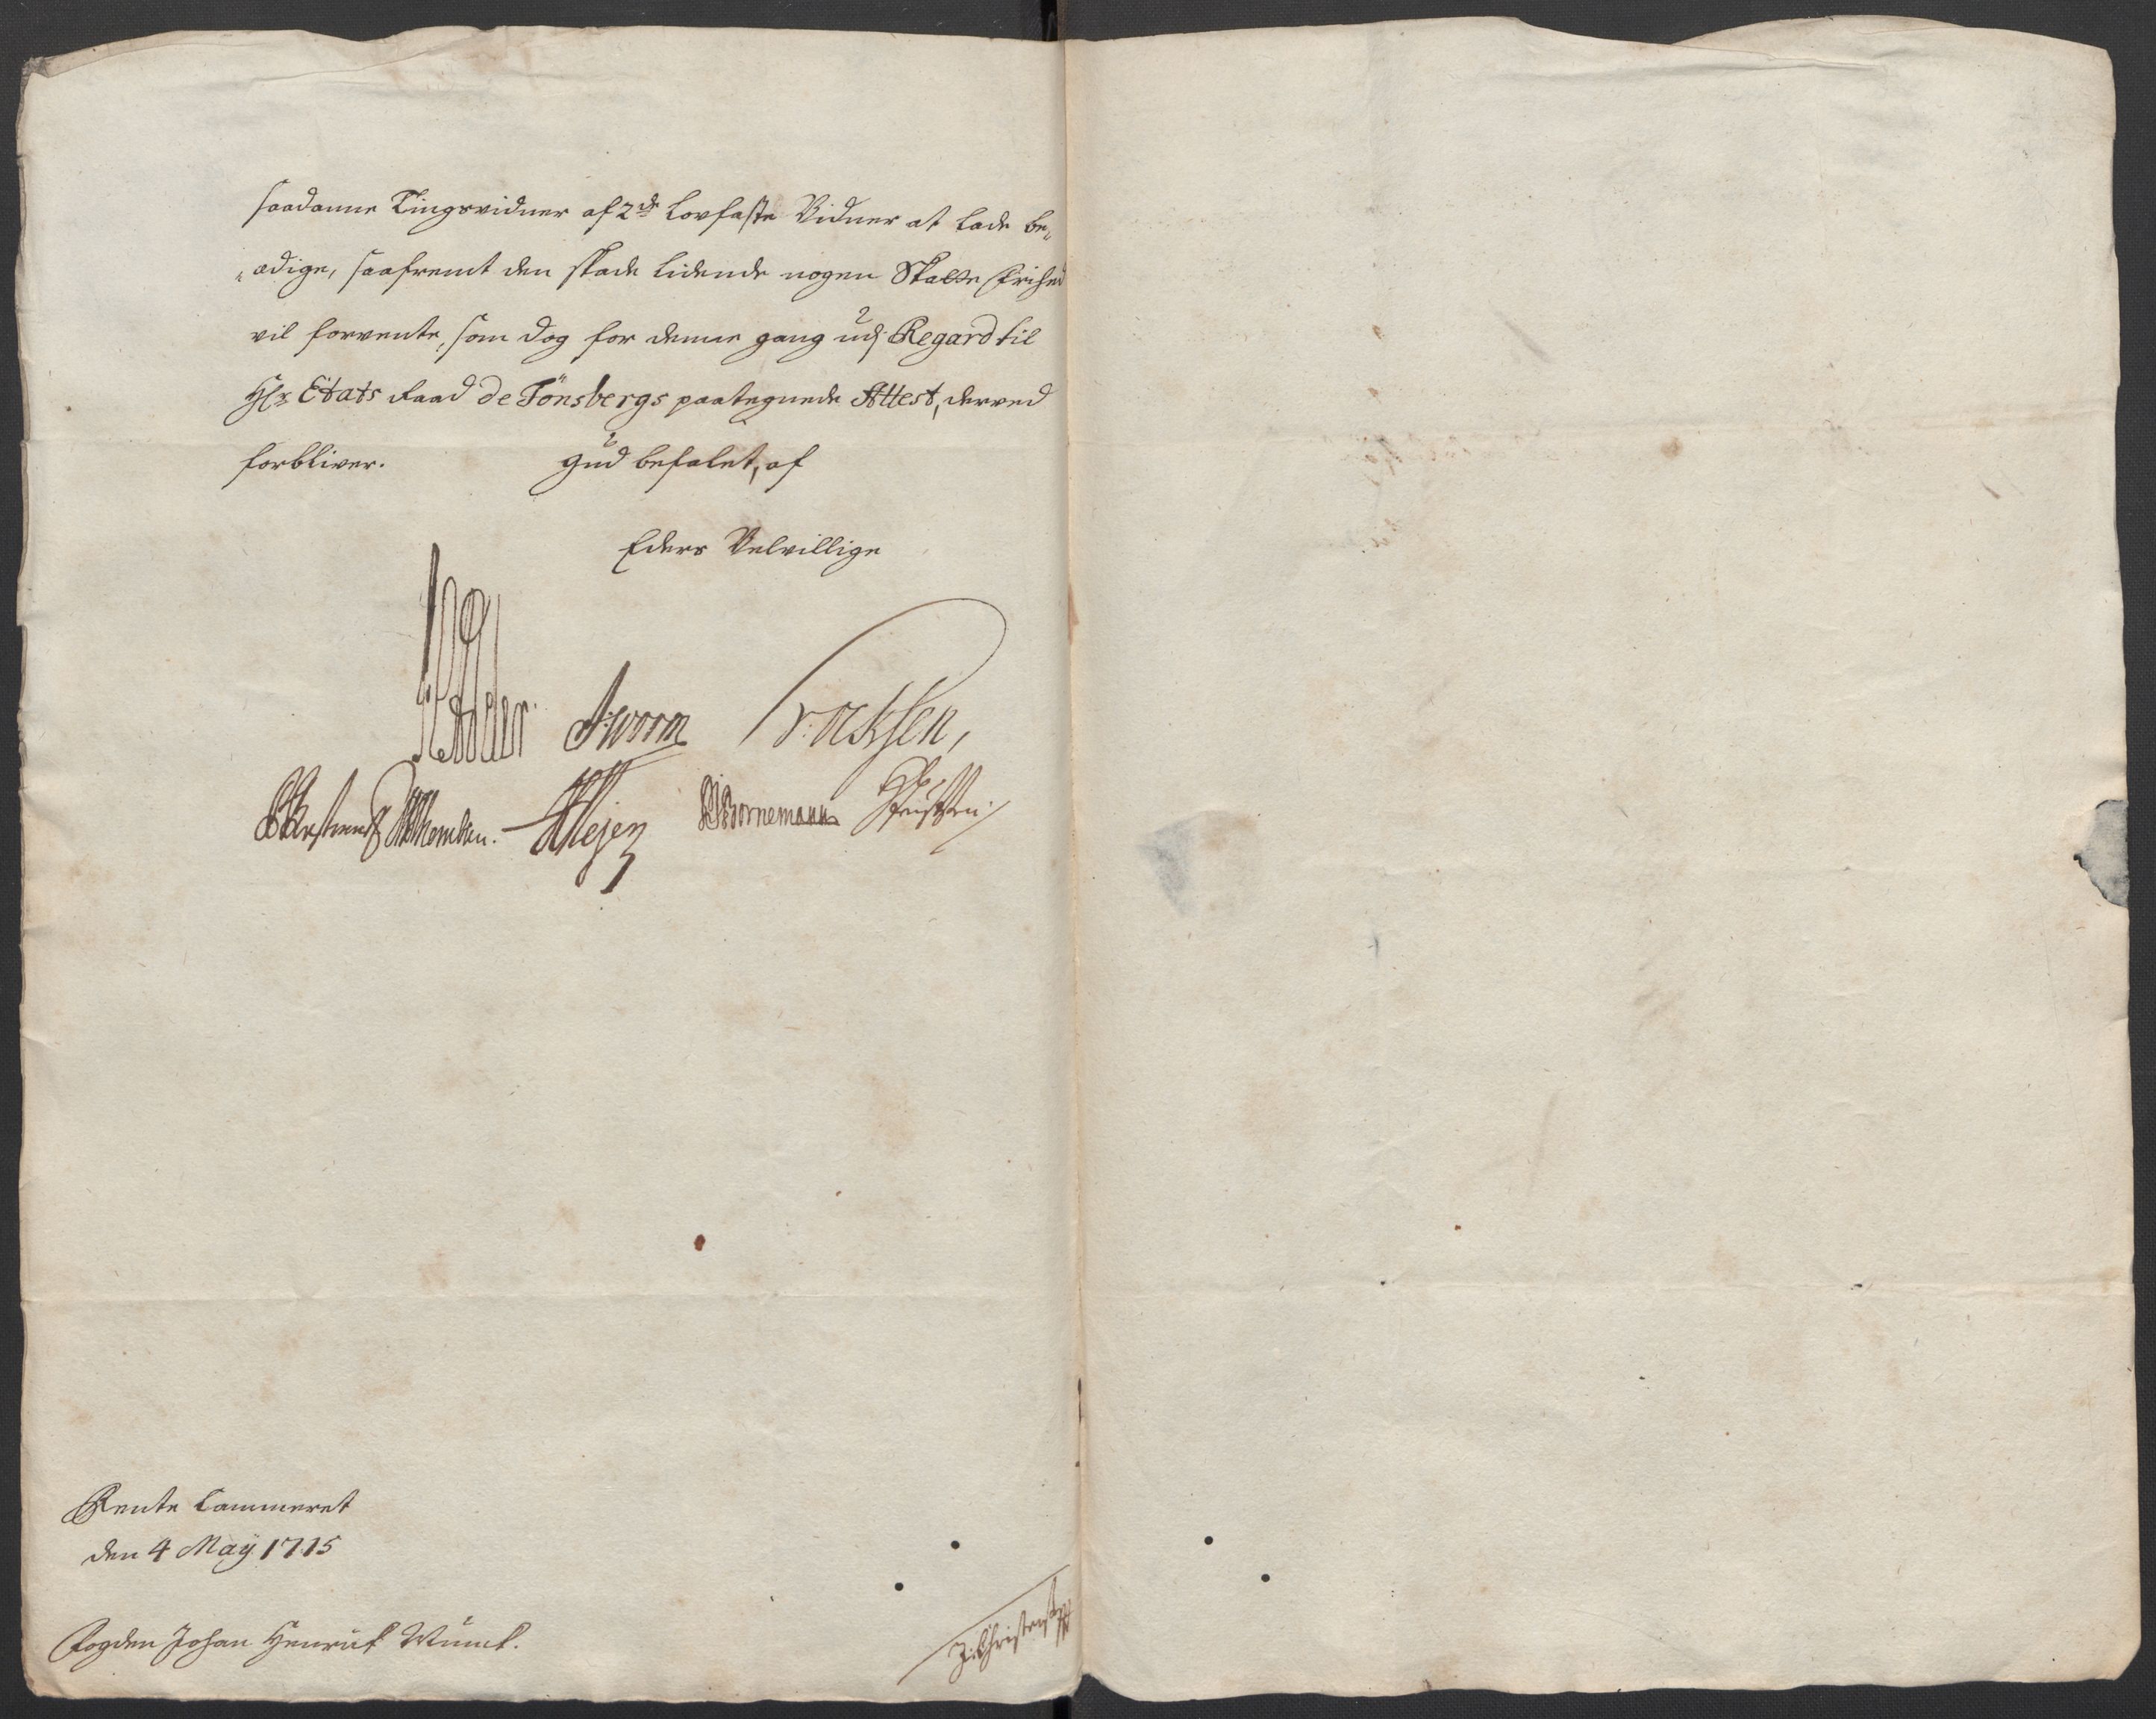 saadanne Tingsvidner af 2de Lovfaste Vidner at lade be„
„ædige, saafremt den skade lidende nogen Skatte Frihed
vil forvente, som dog for denne gang udj Regard til
Hr Etats Raad de Tönsbergs paategnede Attest, derved
forbliver. Gud befalet, af
Eders Velvillige
Adeler. Worm
Bornemann
Rente Cammeret
den 4 May 1715
Fogden Johan Henrich Wünck.
J: Christens